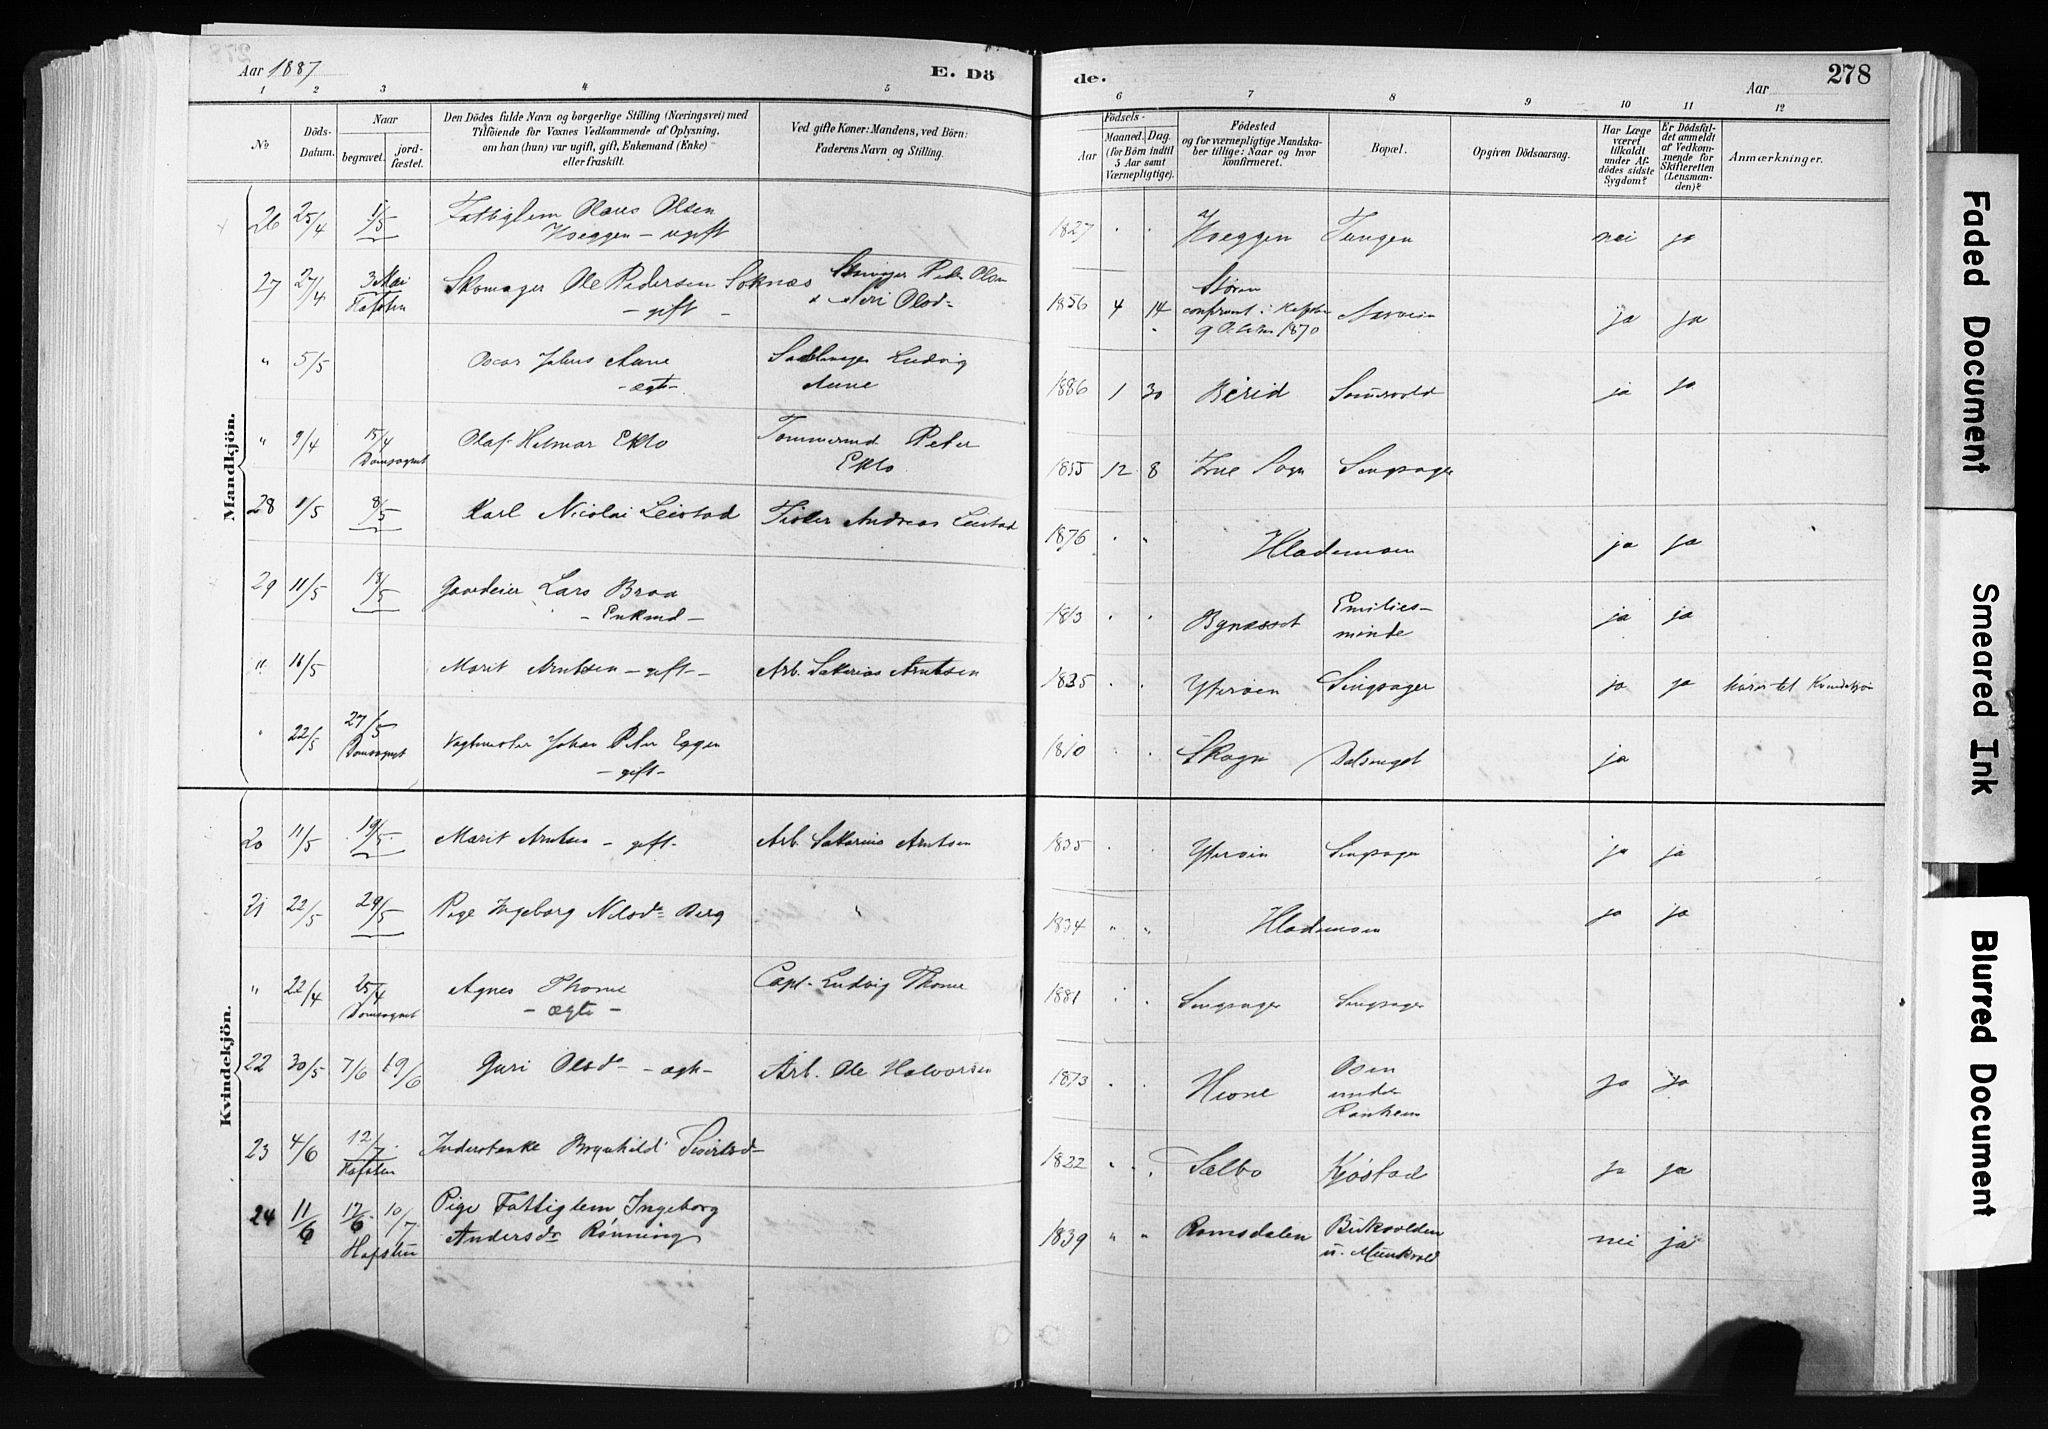 Aar 1887
E. Dö
de.
Aar
278
1 2 3 4 5 6 7 8 9 10 11 12
No
Döds-
Datum.
Naar
begravet.
jord-
fæstet.
Den Dödes fulde Navn og borgerlige Stilling (Næringsvei) med
Tilföiende för Voxnes Vedkommende af Oplysning,
om han (hun) var ugift, gift, Enkemand (Enke)
eller fraskilt.
Ved gifte Koner: Mandens, ved Börn:
Faderens Navn og Stilling.
Födsels-
Aar
Maaned. Dag.
(for Börn indtil
5 Aar samt
Værnepligtige).
Födested
og for værnepligtige Mandska-
ber tillige: Naar og hvor
konfirmeret.
Bopæl.
Opgiven Dödsaarsag.
Har Læge
været
tilkaldt
under Af-
dödes sidste
Sygdom?
Er Dödsfal-
det anmeldt
af Vedkom-
mende for
Skifteretten
(Lensman-
den)?
Anmærkninger.
Mandkjön.
26 25/4 1/5 Fattiglem Olaus Olsen
Hoeggen - ugift
1827 " " Hoeggen Tungen nei ja
27 27/4 3 Mai
Hafsten
Skomager Ole Pedersen Soknæs
- gift -
Peder Olsen
& Olsd-
1856 4 14 Stören
confirmt i Hafsten
1870
ja ja
" 5/5 Oscar Julius Aune
- ægte -
Sadelmager Ludvig
Aune
1886 1 30 ja ja
" 9/4 15/4
Domsognet
Olaf Hilmar Eklo
Tømmermd Peter
Eklo
12 8 Frue Sogn Singsager
28 1/5 8/5 Karl Nicolai Leistad Tisler Andreas Leistad
1876 " " Hlademoen ja ja
29 11/5 18/5 Gaardeier Lars Braa
- Enkmd -
1813 " " Bynæsset Emilies-
minde
ja ja
" 16/5 Marit Arntsen - gift - Arb. Sakarias Arntsen
1835 Ytterøen Singsager ja ja hører til Kvindekjøn
" 22/5 27/5
Domsognet
Vagtmester Johan Peter Eggen
- gift -
1810 " " Skogn Dalsenget ja
Kvindekjön.
20 11/5 19/5 Marit Arntsen - gift - Arb. Sakarias Arntsen
1835 " " Ytterøen Singsager ja ja
21 22/5 29/5 Pige Ingeborg Nilsd. Berg "
1834 " " Hlademoen ja ja
" 22/4 25/4
Domsognet
Agnes Thonne
- ægte -
Capt. Ludvig Thonne
1881 " " Singsager Singsager
22 30/5 7/6 19/6 Guri Olsd - ægte - Arb. Ole Halvorsen
1873 " " Hevne Osen
under
Ranheim
ja ja
23 4/6 12/7
Hafsten
Inderstenke Brynhild Sivertsd-
1822 " " Sælbo Kjøstad ja ja
24 11/6 17/6 10/7
Hafsten
Pige Fattiglem Ingeborg
Andersdr Rønning
1839 " " Romsdalen Birkvolden
u. Munkvold
nei ja
Faded Document
Smeared Ink
Blurred Document